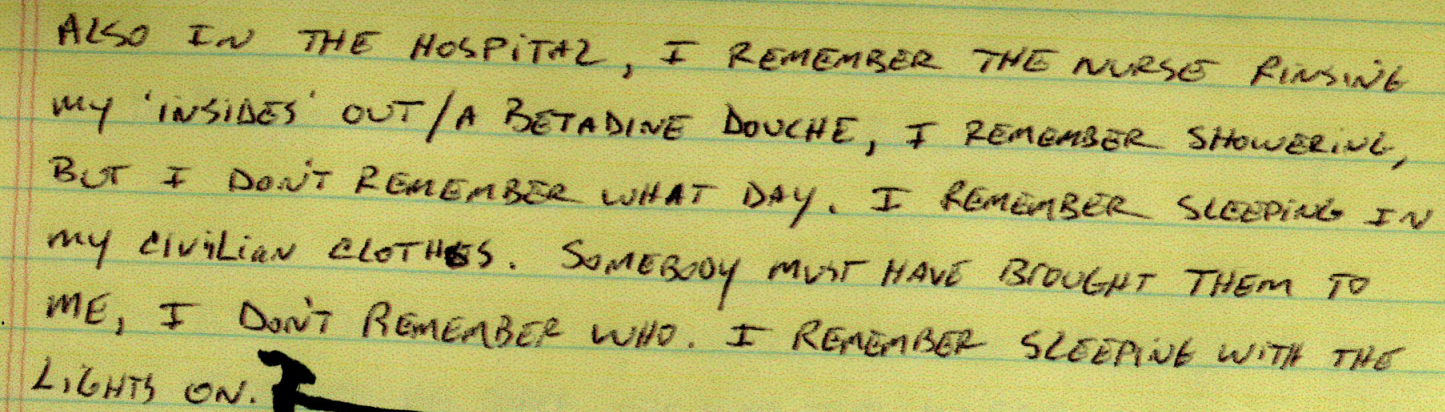 ALSO IN THE HOSPITAL, I REMEMBER THE NURSE RINSING
MY 'INSIDES' OUT/A BETADINE DOUCHE, I REMEMBER SHOWERING,
BUT I DON'T REMEMBER WHAT DAY. I REMEMBER SLEEPING IN
MY CIVILIAN CLOTHES. SOMEBODY MUST HAVE BROUGHT THEM TO
ME, I DON'T REMEMBER WHO. I REMEMBER SLEEPING WITH THE
LIGHTS ON.